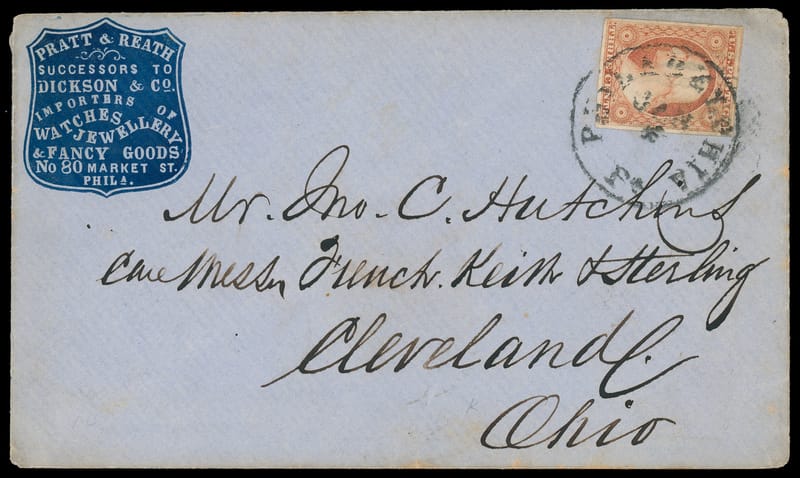 PRATT & REATH
SUCCESSORS TO
DICKSON & Co.
IMPORTERS OF
WATCHES, JEWELLERY
& FANCY GOODS
No 80 MARKET ST.
PHILA.
PHILADELPHIA
Mr. Jno. C. Hutchins
Care Messrs French. Keith & Sterling
Cleveland
Ohio